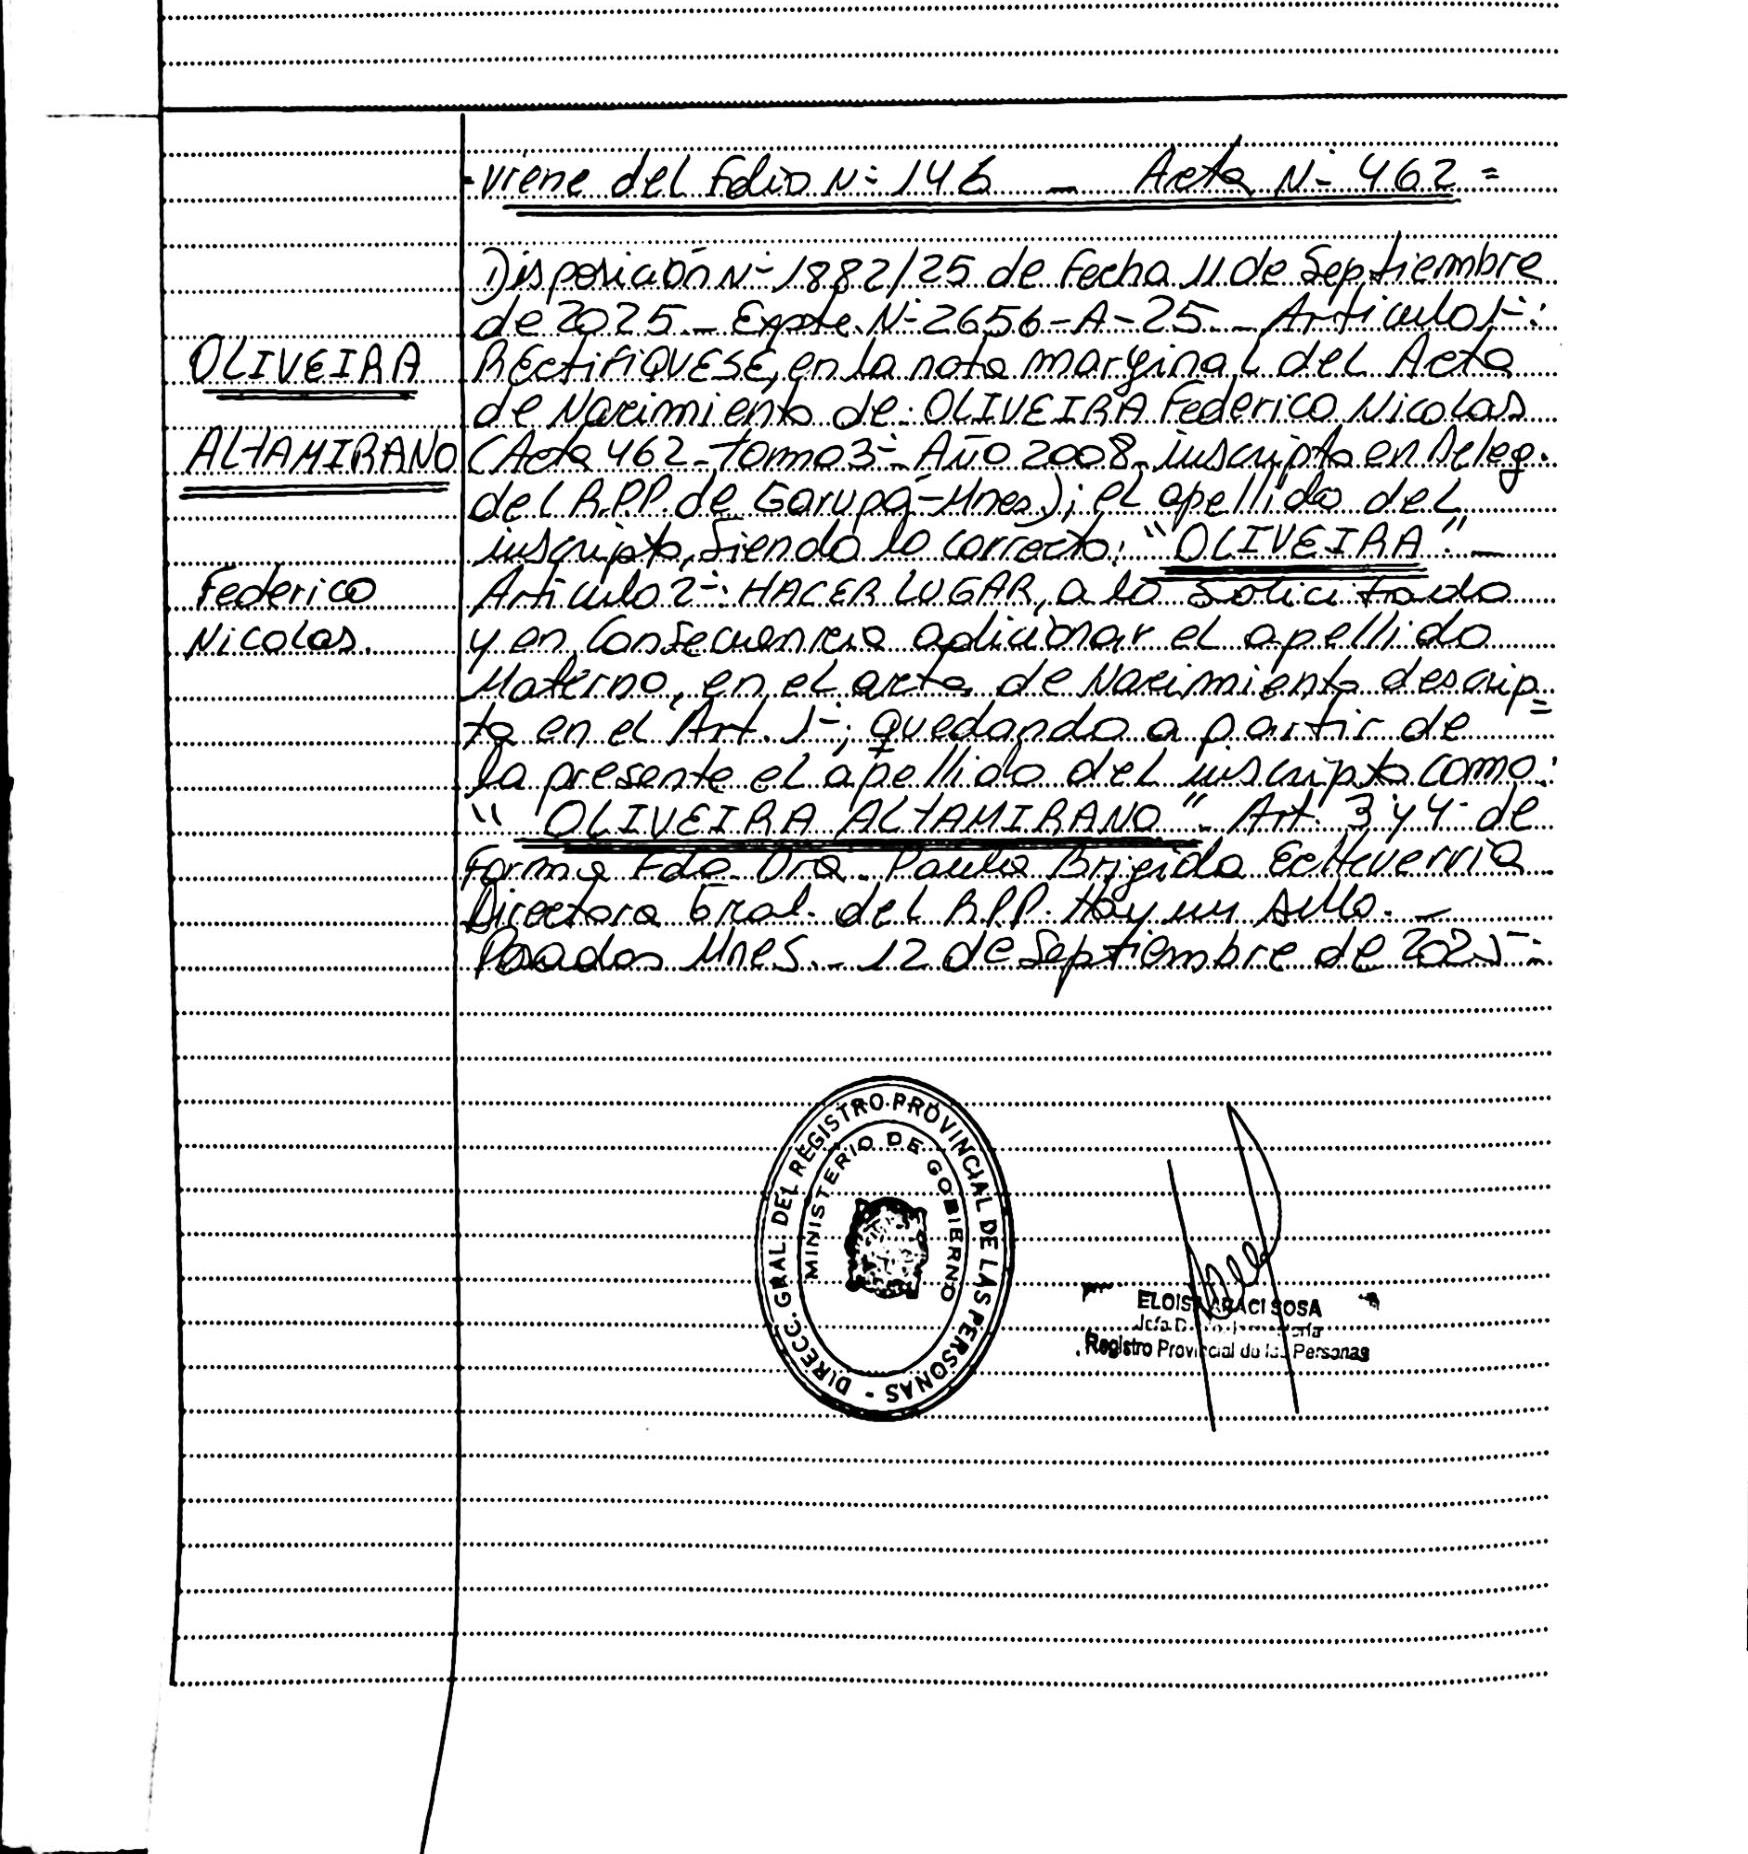 -Viene del Folio N-: 146 - Acta N- 462 =
Disposición N- 1882/25 de Fecha 11 de Septiembre
de 2025 - Expte. N- 2656-A-25 - Articulo 1-:
OLIVEIRA
RECtiFiQUESE, en la nota marginal del Acta
de Nacimiento de: OLIVEIRA Federico Nicolas
ALTAMIRANO
(Acta 462 - tomo 3- - Año 2008, inscripto en Deleg.
del R.P.P. de Garupá - Mnes.); el apellido del
inscripto, Siendo lo correcto: "OLIVEIRA" -
Federico
Articulo 2-: HACER LUGAR, a lo Solicitado
Nicolas.
y en Consecuencia adicionar el apellido
Materno, en el acta de Nacimiento descrip=
to en el Art. 1-; quedando a partir de
la presente el apellido del inscripto como:
"OLIVEIRA ALTAMIRANO". Art. 3 y 4- de
Forma Fdo. Dra. Paula Brigida Echeverria
Directora Gral. del R.P.P. Hay un Sello. -
Posadas Mnes. - 12 de Septiembre de 2025-:
DIRECC. GRAL. DEL REGISTRO PROVINCIAL DE LAS PERSONAS -
MINISTERIO DE GOBIERNO
ELOISA ARACI SOSA
Registro Provincial de las Personas